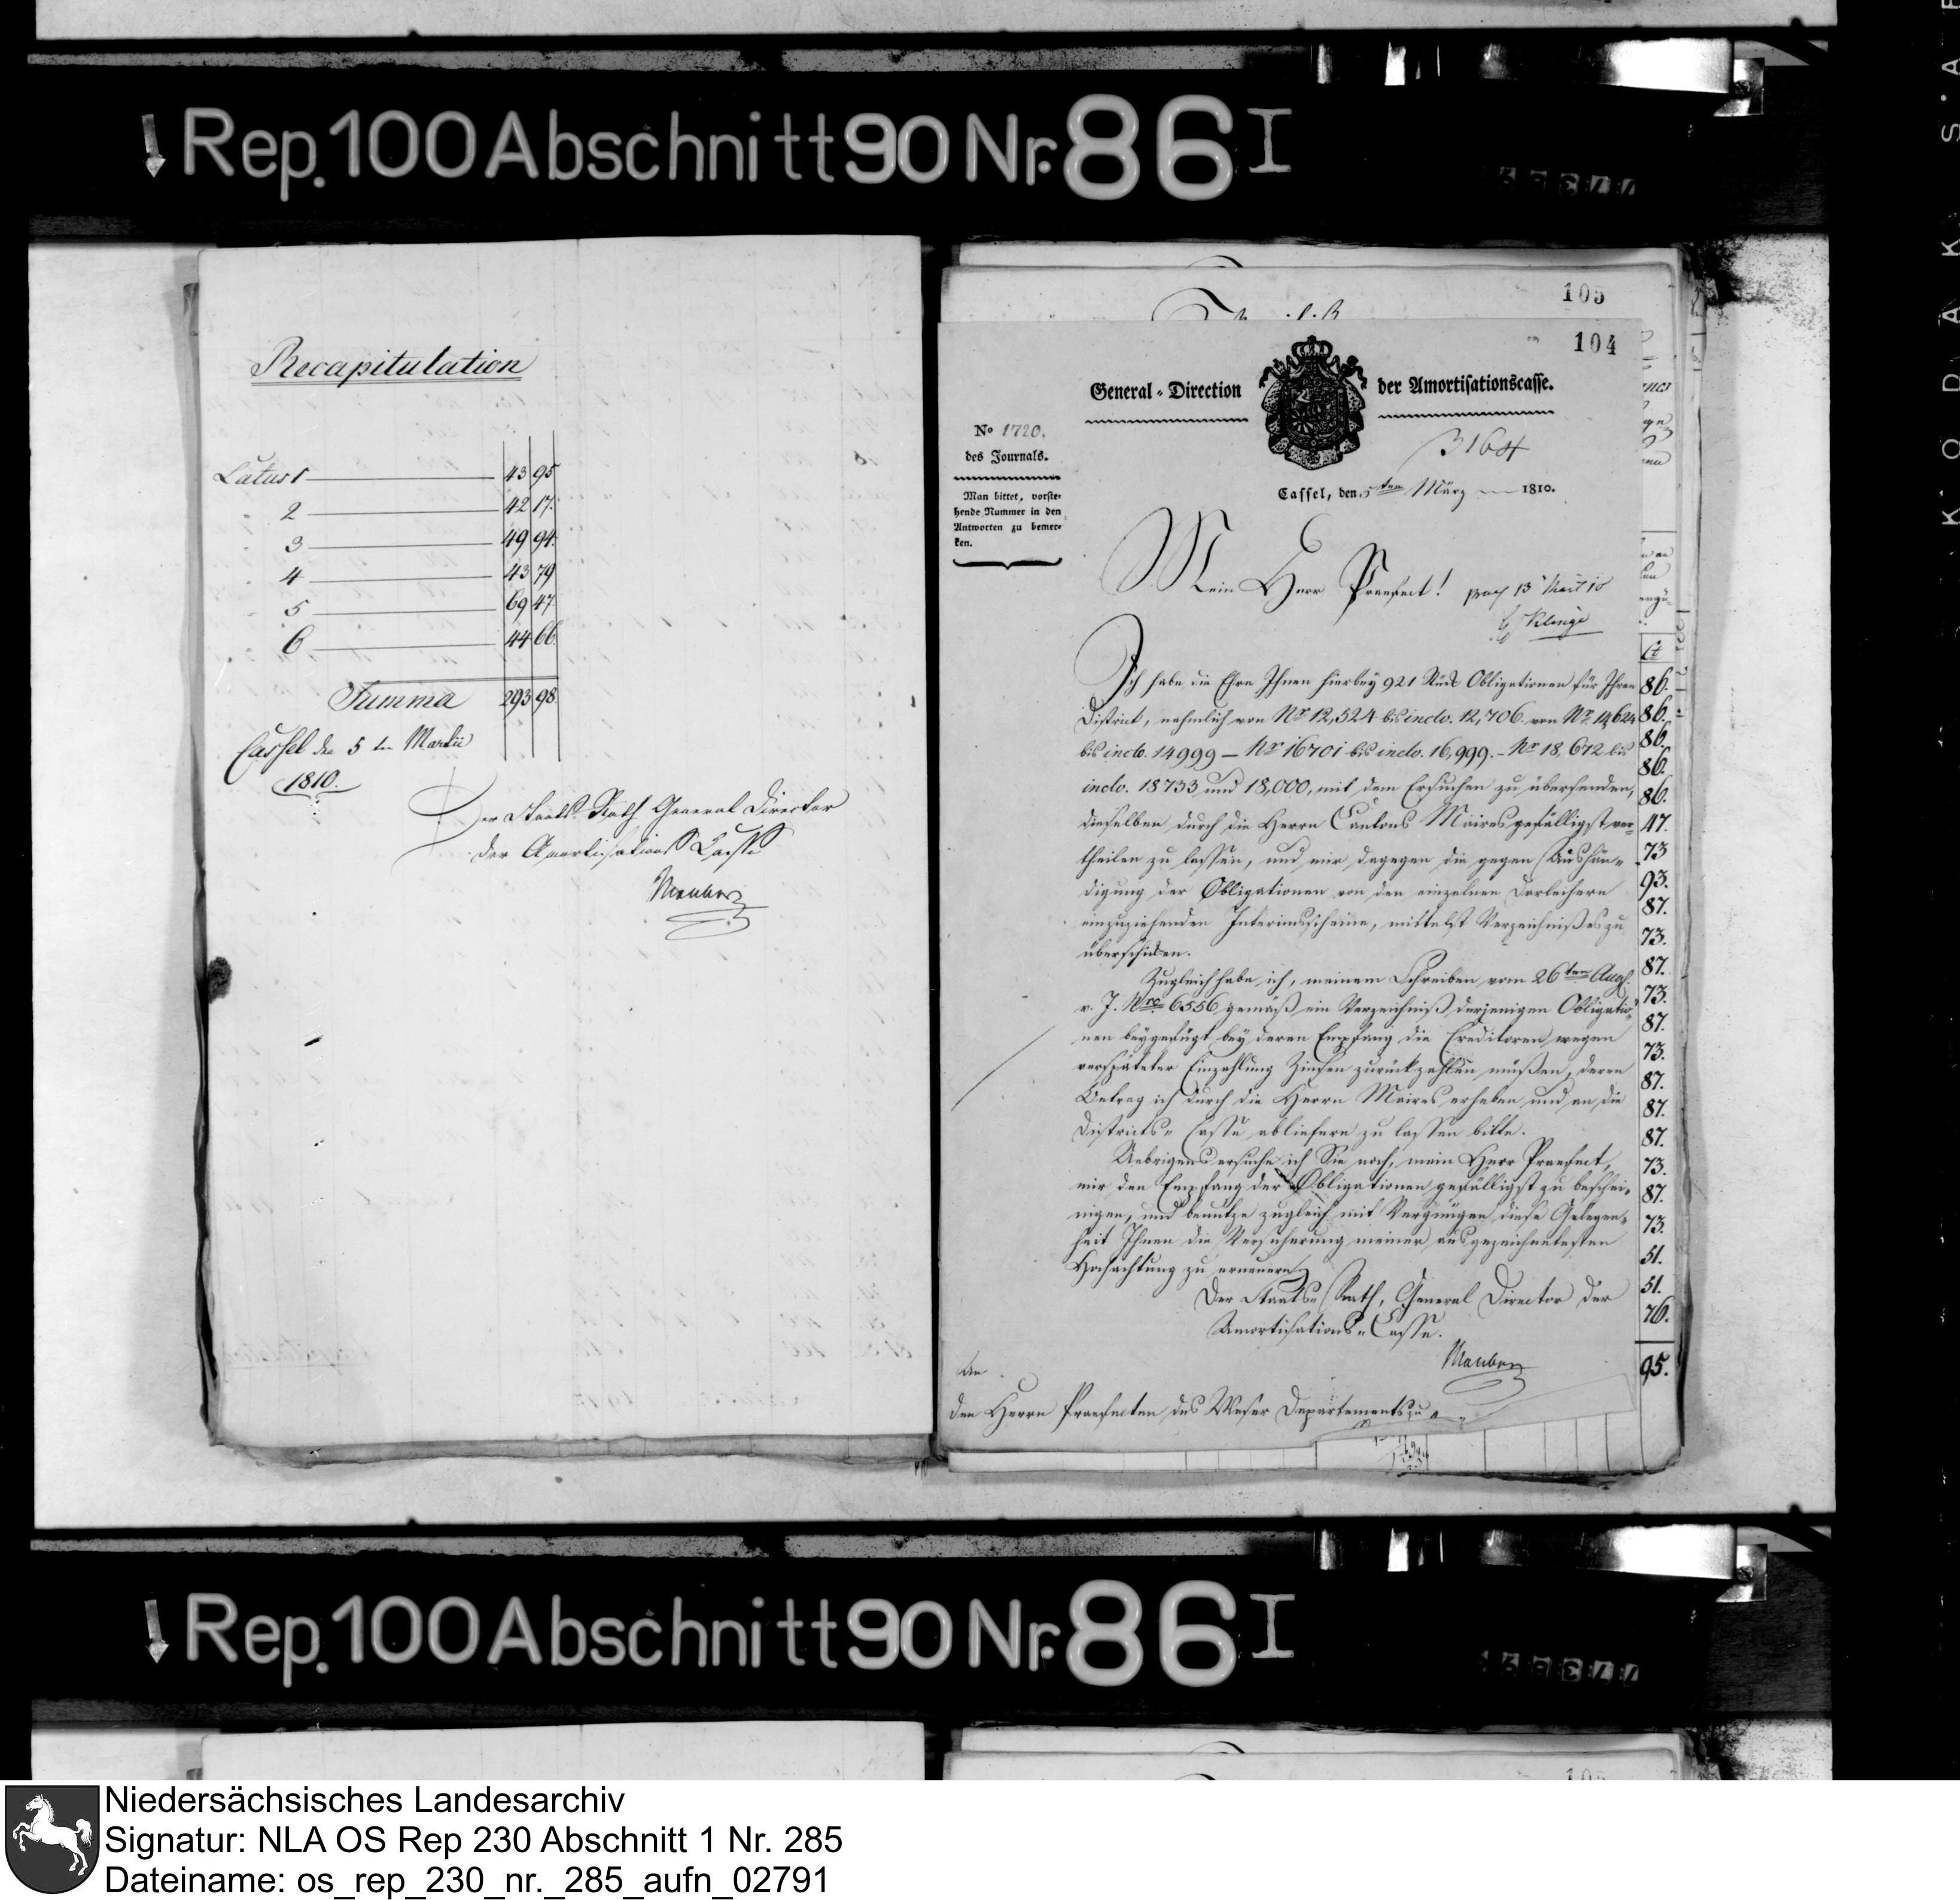 Rep. 100 Abschnitt 90 Nr. 86 I
Recapitulation
Latus 1 43 95
2 42 17.
3 49 94.
4 43 79
5 69 47.
6 44 66.
Summa 293 98.
Cassel den 5 ten Martii
1810.
Der Staats-Rath General Director
der Amortisations Casse
105
104
General-Direction der Amortisationscasse.
No 1720.
des Journals.
Man bittet, vorste-
hende Nummer in den
Antworten zu bemer-
ken.
3164
Cassel, den 5ten März 1810.
Mein Herr Praefect!
Klinge
Ich habe die Ehre Ihnen hierbey 921 Stück Obligationen für Ihren
District, nehmlich von No 12,524 bis inclv. 12,706. von No 14624
bis inclv. 14999 – No 16701 bis inclv. 16,999. – No 18,672 bis
inclv. 18733 und 18,000, mit dem Ersuchen zu übersenden,
dieselben durch die Herrn Cantons Maires gefälligst ver-
theilen zu lassen, und mir dagegen die gegen Aushän-
digung der Obligationen von den einzelnen Darleihern
einzuziehenden Interimsscheine, mittelst Verzeichnißes zu
überschicken.
Zugleich habe ich, meinem Schreiben vom 26ten Aug.
v. J. Nro 6556 gemäß ein Verzeichniß derjenigen Obligatio-
nen beygefügt bey deren Empfang die Creditoren wegen
verspäteter Einzahlung Zinsen zurückzahlen müßen, deren
Betrag ich durch die Herrn Maires erheben und an die
Districts-Casse abliefern zu lassen bitte.
Uebrigens ersuche ich Sie noch, mein Herr Praefect,
mir den Empfang der Obligationen gefälligst zu beschei-
nigen, und benutze zugleich mit Vergnügen diese Gelegen-
heit Ihnen die Versicherung meiner ausgezeichnetesten
Hochachtung zu erneuern.
Der Staats-Rath, General Director der
Amortisations-Casse.
An
den Herrn Praefecten des Weser Departements zu
Ct
86.
86.
86.
86.
86.
47.
73
93.
87.
73.
87.
73.
87.
73.
87.
87.
87.
73.
87.
73.
51.
51.
76.
95.
Rep. 100 Abschnitt 90 Nr. 86 I
KODAK
Niedersächsisches Landesarchiv
Signatur: NLA OS Rep 230 Abschnitt 1 Nr. 285
Dateiname: os_rep_230_nr._285_aufn_02791